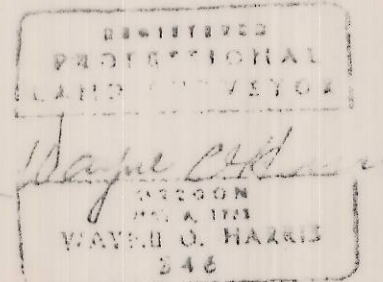 REGISTERED
PROFESSIONAL
LAND SURVEYOR
OREGON
WAYNE O. HARRIS
546